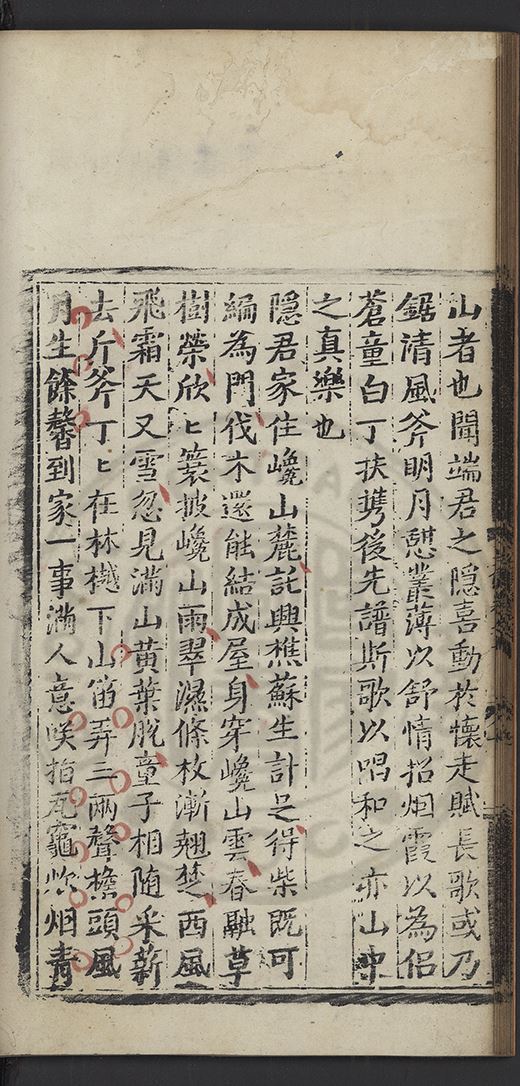 山者也聞端君之隐喜動於懷走賦長歌或乃
鋸清風斧明月憇叢薄以舒情招烟霞以為侣
蒼童白丁扶携後先譜斯歌以唱和之亦山中
之真樂也
隠君家住巉山麓託興樵蘇生計足得柴既可
編為門伐木還能結成屋身穿巉山雲春融草
樹榮欣〻簑披巉山雨翠濕條枚漸翹楚西風
飛霜天又雪忽見滿山黃葉脱童子相随采薪
去斤斧丁〻在林樾下山笛弄三兩聲檐頭風
月生餘馨到家一事滿人意咲指瓦竈炊烟青